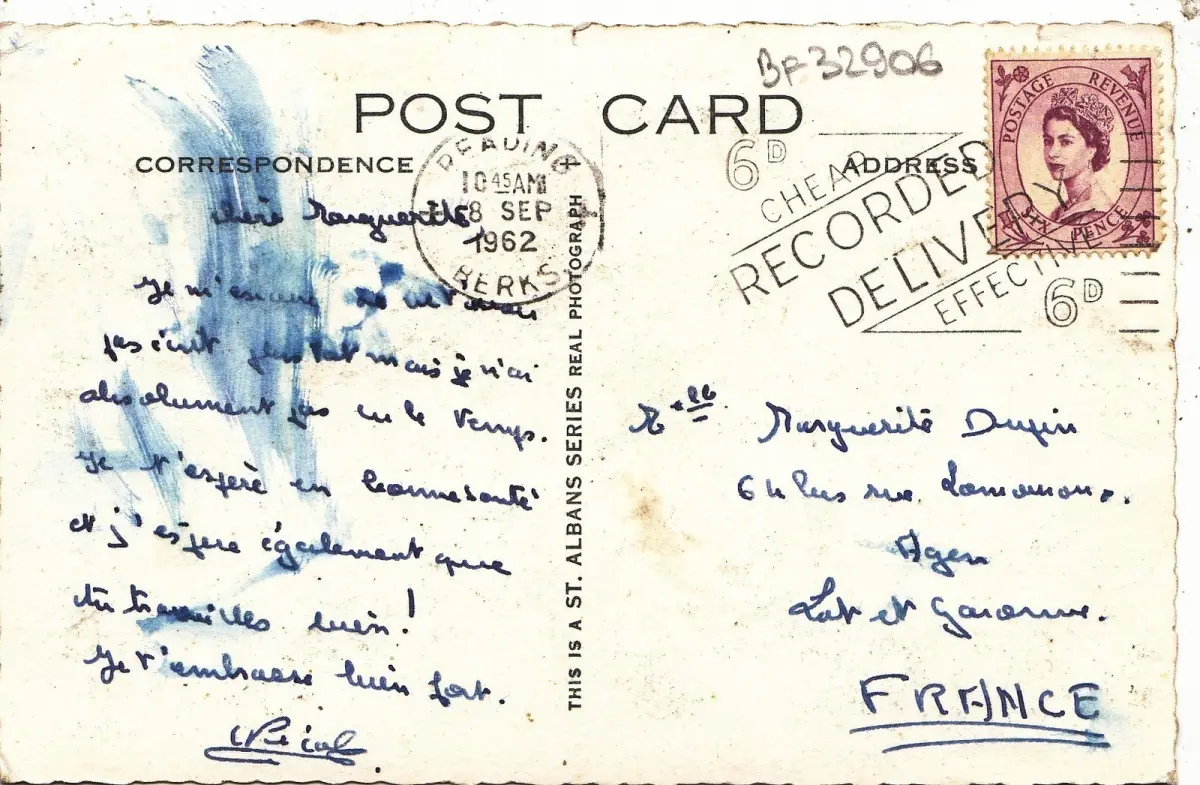 BF32906
POST CARD
CORRESPONDENCE
ADDRESS
READING
10 45 AM
18 SEP
1962
BERKS
6D
CHEAP
RECORDED
DELIVERY
EFFECTIVE
6D
POSTAGE REVENUE
SIX PENCE
Chère Marguerite,
Je m'excuse de ne t'avoir
pas écrit plus tôt mais je n'ai
absolument pas eu le temps.
Je t'espère en bonne santé
et j'espère également que
tu travailles bien !
Je t'embrasse bien fort.
THIS IS A ST. ALBANS SERIES REAL PHOTOGRAPH
Melle Marguerite Dupin
64 bis rue
Agen
Lot et Garonne.
FRANCE